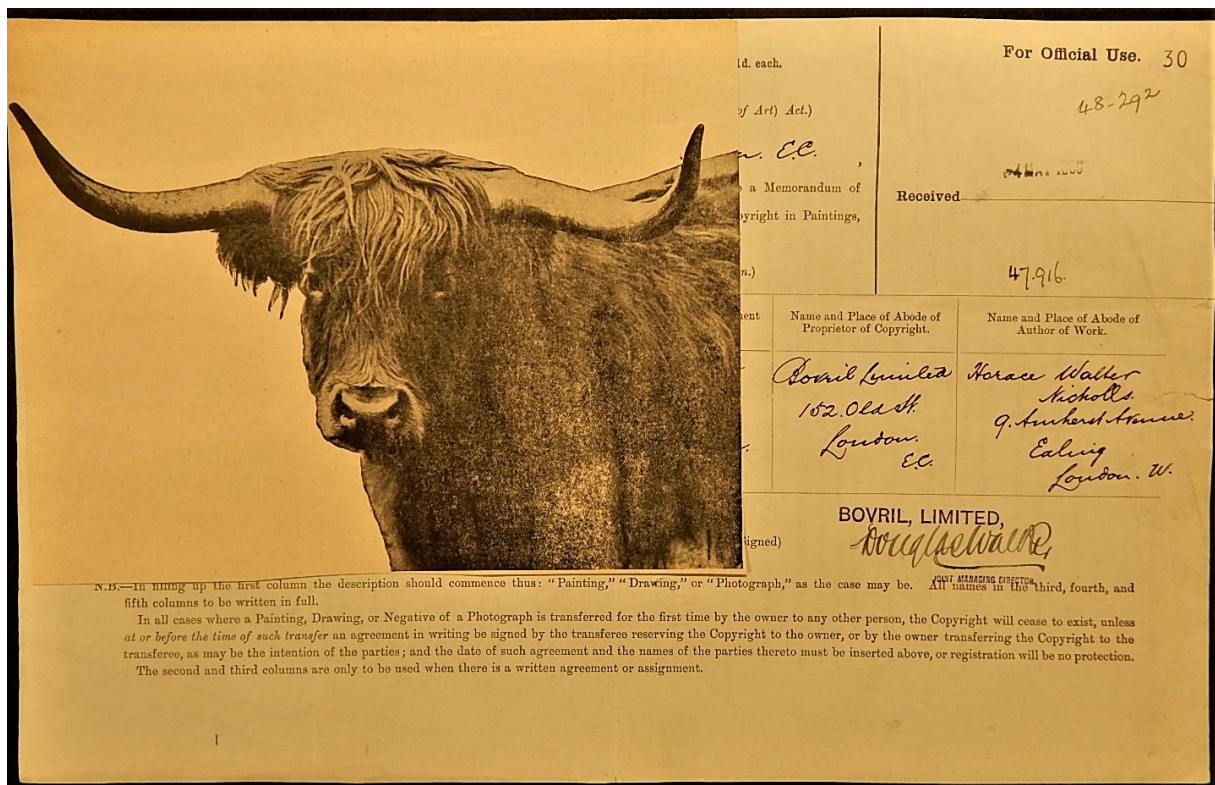 For Official Use. 30
48-292
Received
47.916.
d. each.
of Art) Act.)
E.C.
a Memorandum of
pyright in Paintings,
n.)
ent
Name and Place of Abode of
Proprietor of Copyright.
Bovril Limited
152. Old St.
London.
E.C.
Name and Place of Abode of
Author of Work.
Horace Walter
Nicholls.
9. Amherst Avenue.
Ealing
London. W.
igned)
BOVRIL, LIMITED,
Douglas Walker
JOINT MANAGING DIRECTOR
N.B.—In filling up the first column the description should commence thus: "Painting," "Drawing," or "Photograph," as the case may be. All names in the third, fourth, and
fifth columns to be written in full.
In all cases where a Painting, Drawing, or Negative of a Photograph is transferred for the first time by the owner to any other person, the Copyright will cease to exist, unless
at or before the time of such transfer an agreement in writing be signed by the transferee reserving the Copyright to the owner, or by the owner transferring the Copyright to the
transferee, as may be the intention of the parties; and the date of such agreement and the names of the parties thereto must be inserted above, or registration will be no protection.
The second and third columns are only to be used when there is a written agreement or assignment.